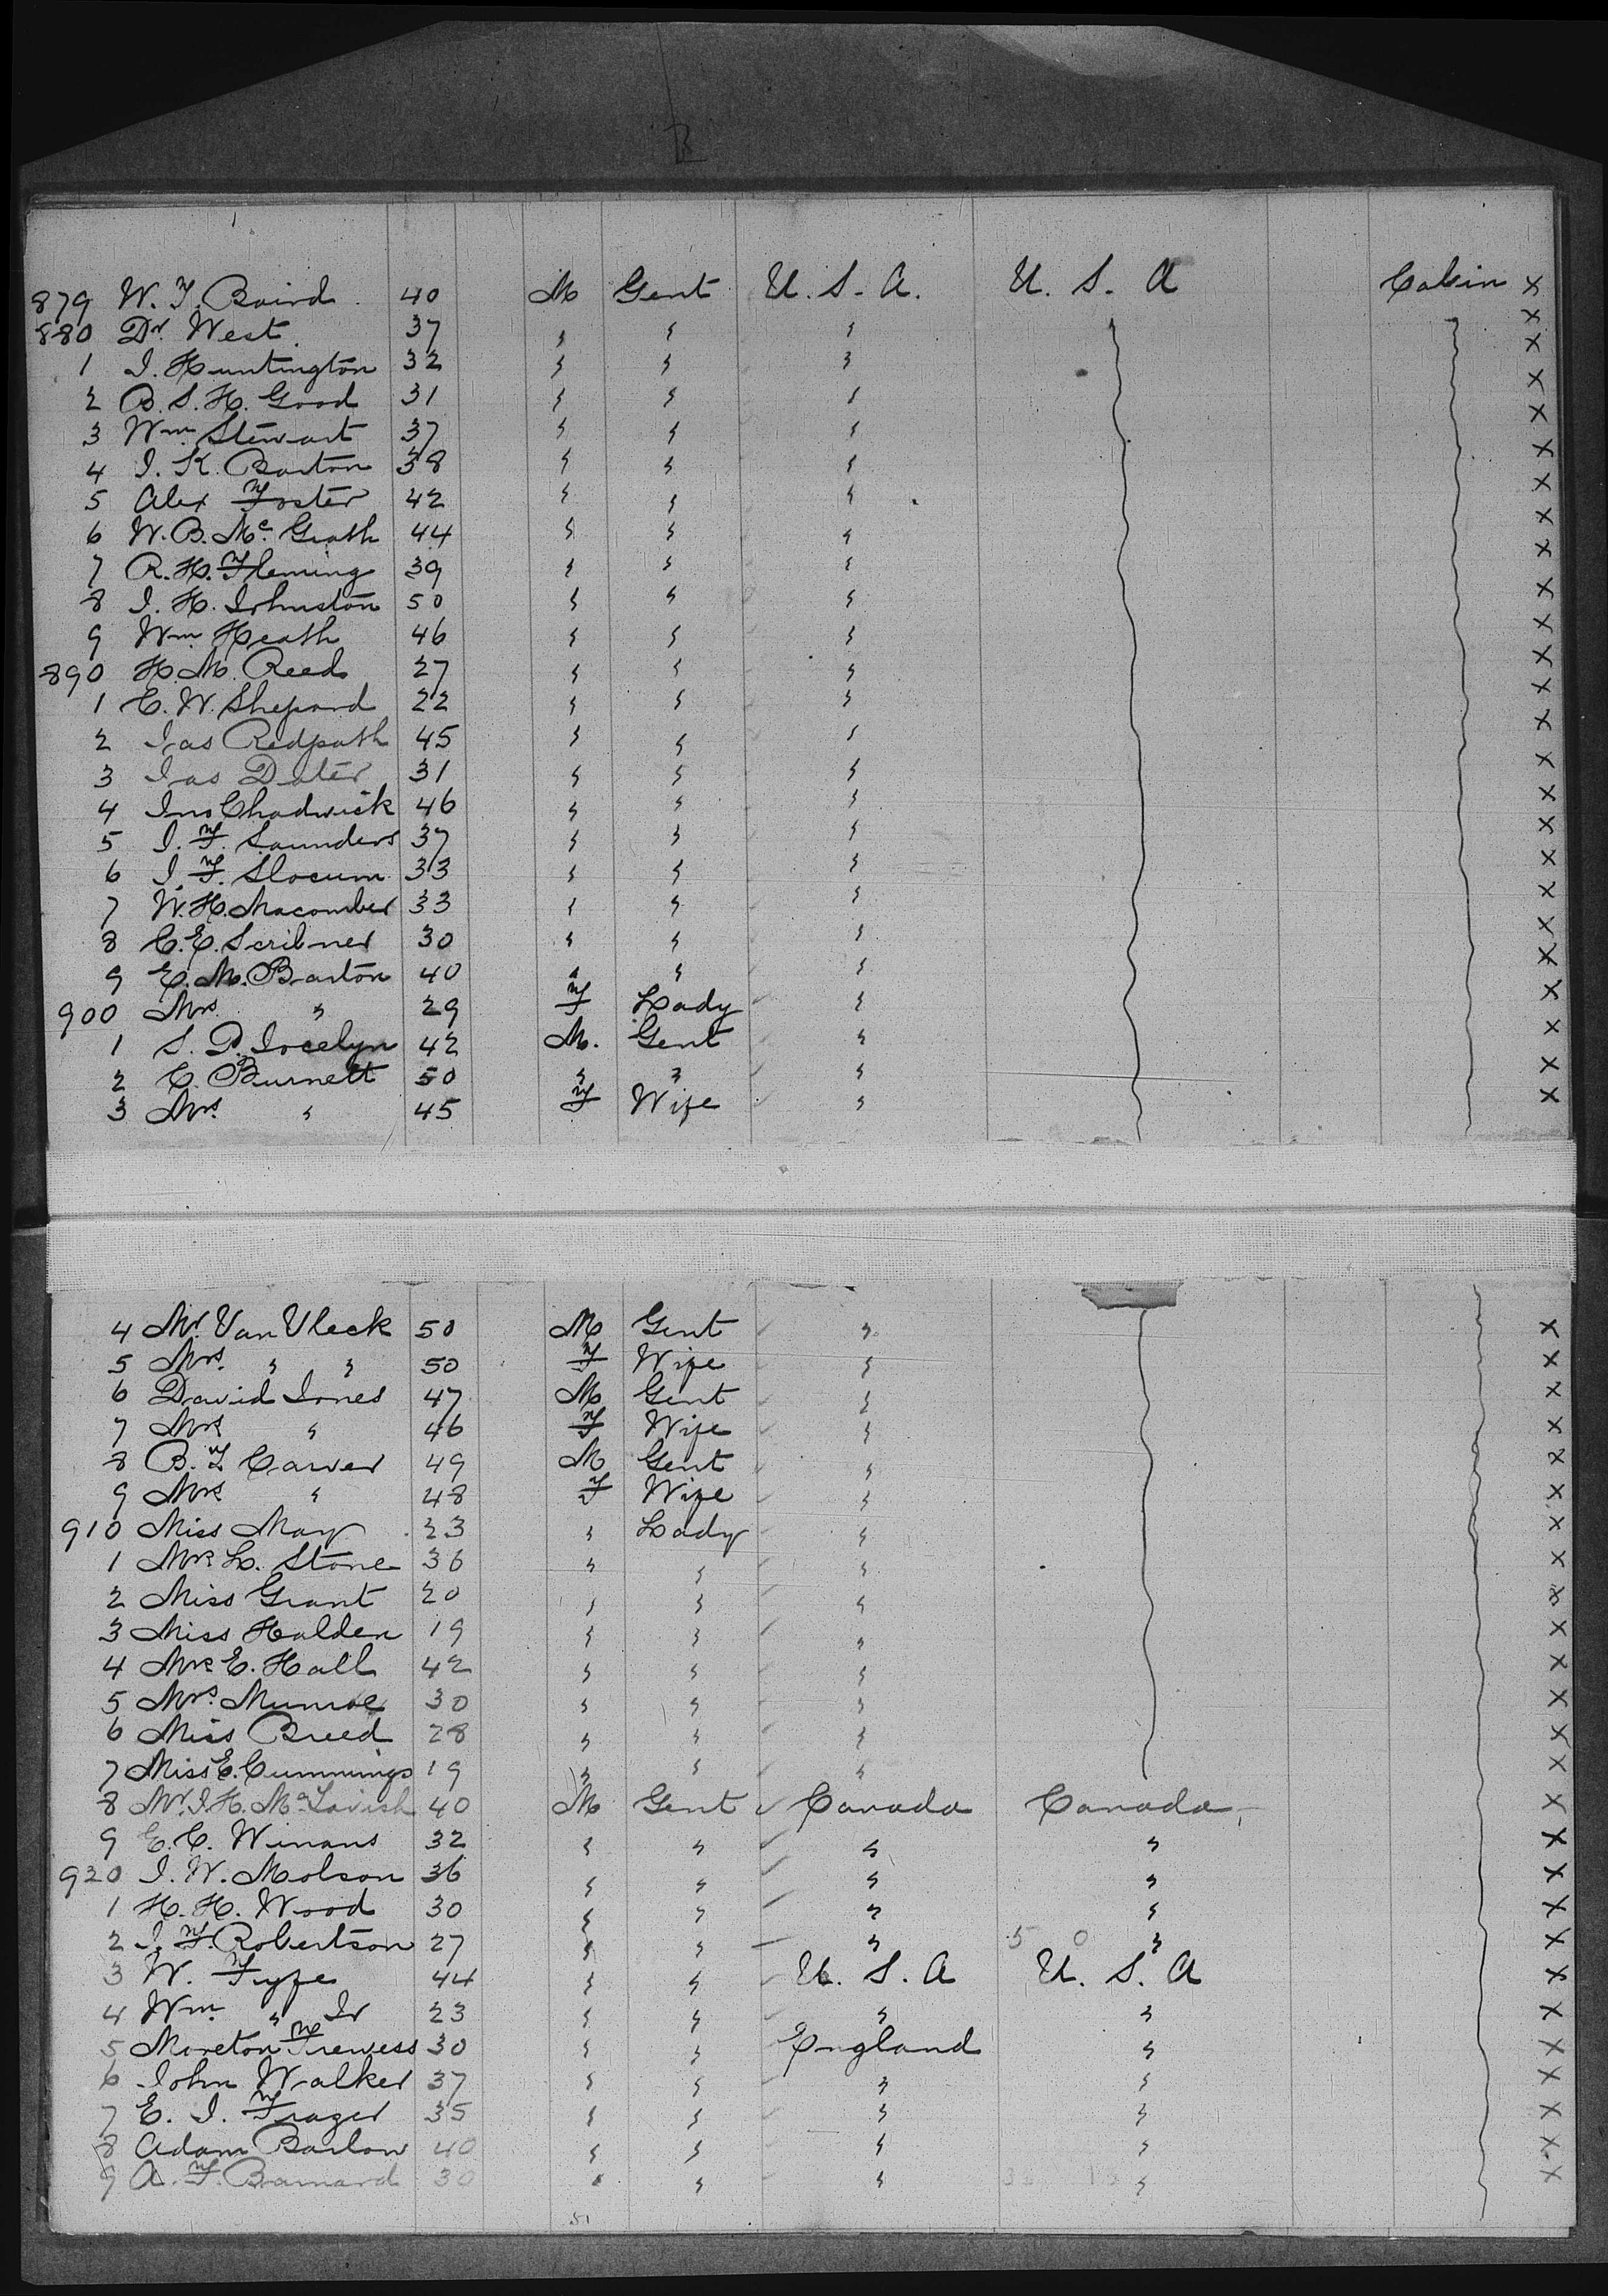 879 W. F. Baird 40 M Gent U. S. A. U. S. A Cabin X
880 Dr West 37 " " " X
1 J. Huntington 32 " " " X
2 B. S. H. Good 31 " " " X
3 Wm Stewart 37 " " " X
4 J. K. Barton 38 " " " X
5 Alex Foster 42 " " " X
6 W. B. Mc Grath 44 " " " X
7 R. H. Fleming 39 " " " X
8 J. H. Johnston 50 " " " X
9 Wm Heath 46 " " " X
890 H. M. Reed 27 " " " X
1 C. W. Shepard 22 " " " X
2 Jas Redpath 45 " " " X
3 Jas Dater 31 " " " X
4 Jno Chadwick 46 " " " X
5 J. F. Saunders 37 " " " X
6 J. F. Slocum 33 " " " X
7 W. H. Macomber 33 " " " X
8 C. E. Scribner 30 " " " X
9 E. M. Barton 40 " " " X
900 Mrs " 29 F Lady " X
1 S. P. Jocelyn 42 M. Gent " X
2 C. Burnett 50 " " " X
3 Mrs. " 45 F Wife " X
4 Mr Van Vleck 50 M Gent " X
5 Mrs. " " 50 F Wife " X
6 David Jones 47 M Gent " X
7 Mrs " 46 F Wife " X
8 B. F. Carver 49 M Gent " X
9 Mrs " 48 F Wife " X
910 Miss May 23 " Lady " X
1 Mrs L. Stone 36 " " " X
2 Miss Grant 20 " " " X
3 Miss Halden 19 " " " X
4 Mrs E. Hall 42 " " " X
5 Mrs. Munroe 30 " " " X
6 Miss Breed 28 " " " X
7 Miss E. Cummings 19 " " " X
8 Mr. J. H. McTavish 40 M Gent Canada Canada X
9 E. C. Winans 32 " " " " X
920 J. W. Molson 36 " " " " X
1 H. H. Wood 30 " " " " X
2 J. F. Robertson 27 " " " " X
3 W. Fyfe 44 " " U. S. A U. S. A X
4 Wm " Jr 23 " " " " X
5 Moreton Frewess 30 " " England " X
6 John Walker 37 " " " " X
7 E. J. Frazer 35 " " " " X
8 Adam Barlow 40 " " " " X
9 A. F. Barnard 30 " " " " X